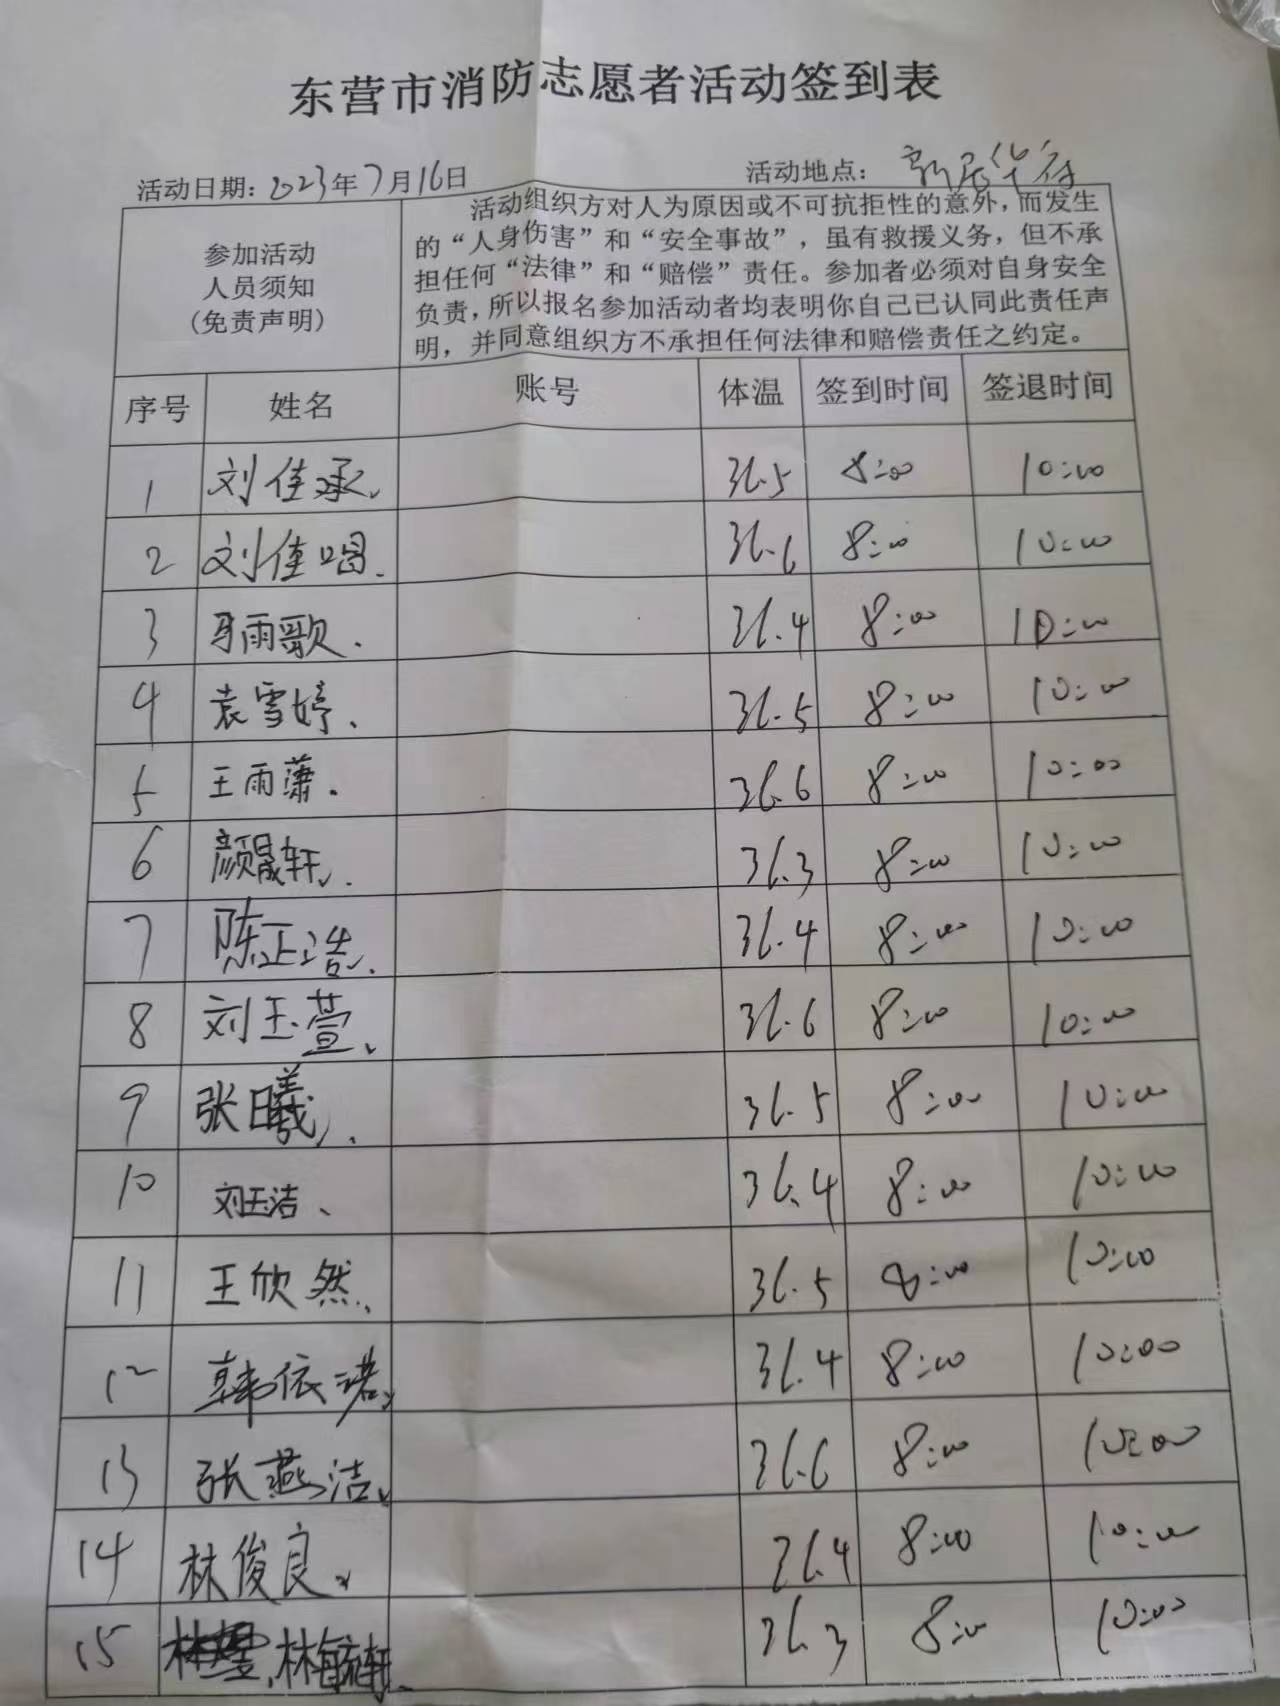 东营市消防志愿者活动签到表
活动日期：2023年7月16日 活动地点：新居华府
参加活动
人员须知
(免责声明)
活动组织方对人为原因或不可抗拒性的意外，而发生
的“人身伤害”和“安全事故”，虽有救援义务，但不承
担任何“法律”和“赔偿”责任。参加者必须对自身安全
负责，所以报名参加活动者均表明你自己已认同此责任声
明，并同意组织方不承担任何法律和赔偿责任之约定。
序号 姓名 账号 体温 签到时间 签退时间
1 刘佳承 36.5 8:00 10:00
2 刘佳 36.6 8:00 10:00
3 马雨歌 36.4 8:00 10:00
4 袁雪婷 36.5 8:00 10:00
5 王雨薄 36.6 8:00 10:00
6 颜晟轩 36.3 8:00 10:00
7 陈正浩 36.4 8:00 10:00
8 刘玉萱 36.6 8:00 10:00
9 张曦 36.5 8:00 10:00
10 刘玉洁 36.4 8:00 10:00
11 王欣然 36.5 8:00 10:00
12 韩依诺 36.4 8:00 10:00
13 张燕洁 36.6 8:00 10:00
14 林俊良 36.4 8:00 10:00
15 林毓轩 36.3 8:00 10:00